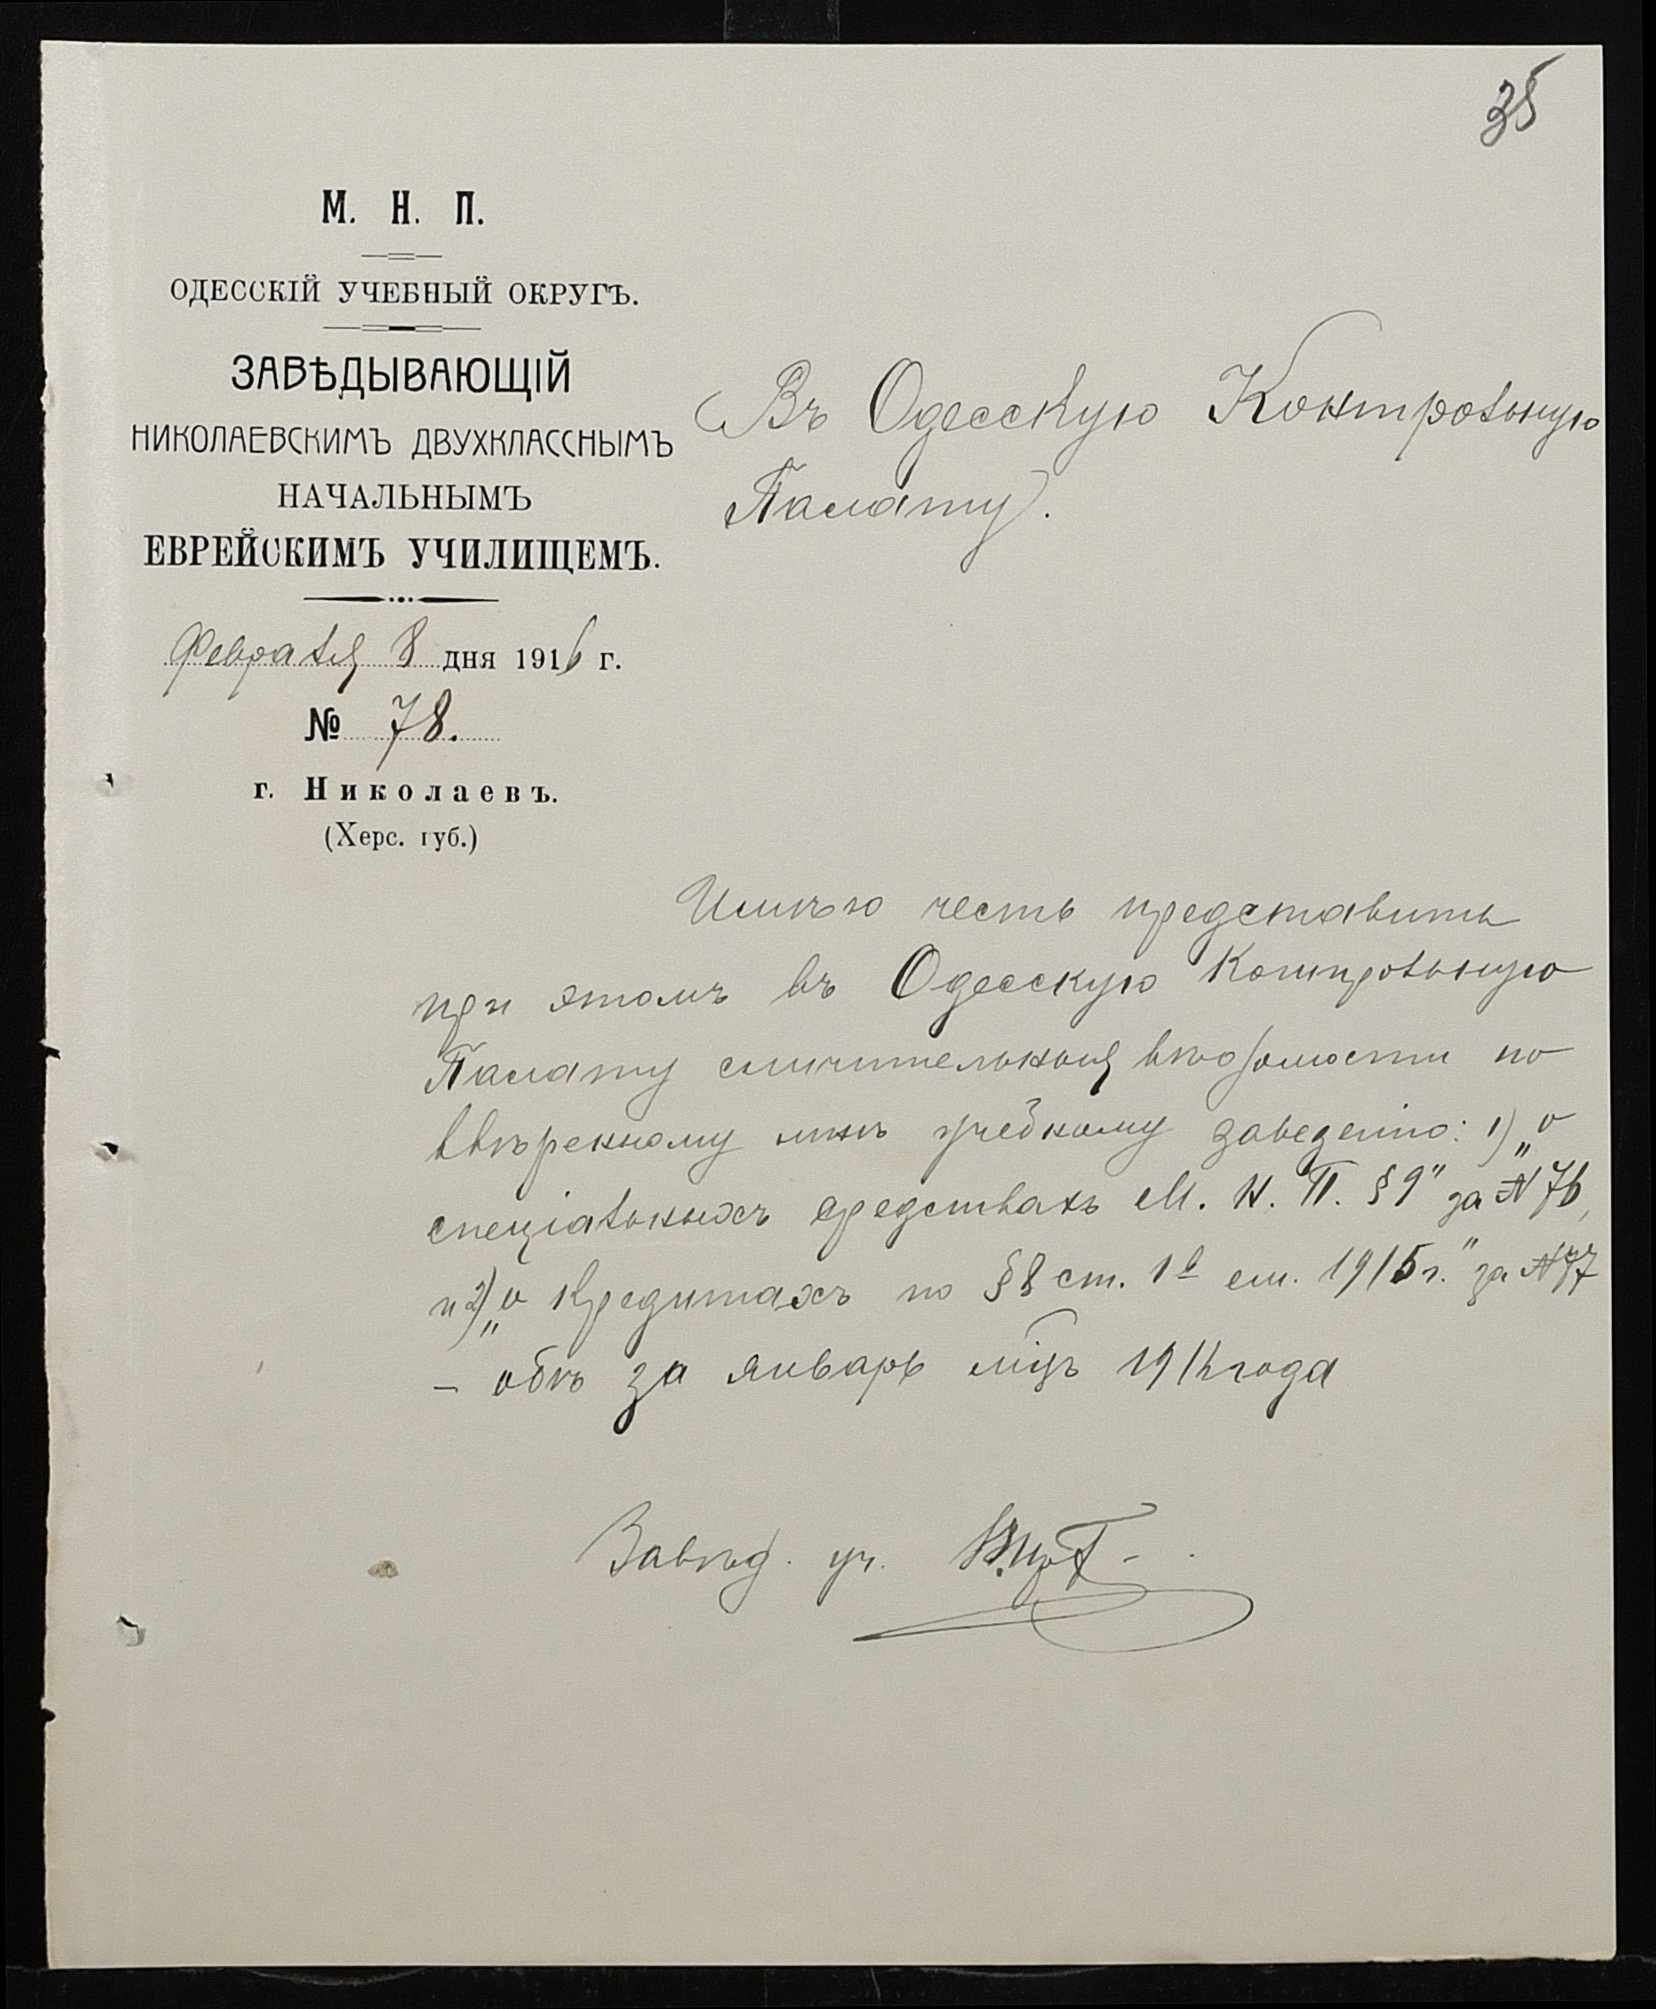 35
М. Н. П.
ОДЕССКІЙ УЧЕБНЫЙ ОКРУГЪ.
ЗАВѢДЫВАЮЩІЙ
НИКОЛАЕВСКИМЪ ДВУХКЛАССНЫМЪ
НАЧАЛЬНЫМЪ
ЕВРЕЙСКИМЪ УЧИЛИЩЕМЪ.
Февраля 8 дня 1916 г.
№ 78.
г. Николаевъ.
(Херс. губ.)
Въ Одесскую Контрольную
Палату.
Имѣю честь представить
при этомъ въ Одесскую Контрольную
Палату сличительныя вѣдомости по
ввѣренному мнѣ учебному заведенію: 1) „о
спеціальныхъ средствахъ М. Н. П. § 9" за № 76,
и 2) „о кредитахъ по § 8 ст. 1 см. 1915 г." за № 77
— обѣ за январь мцъ 1916 года
Завѣд. уч.